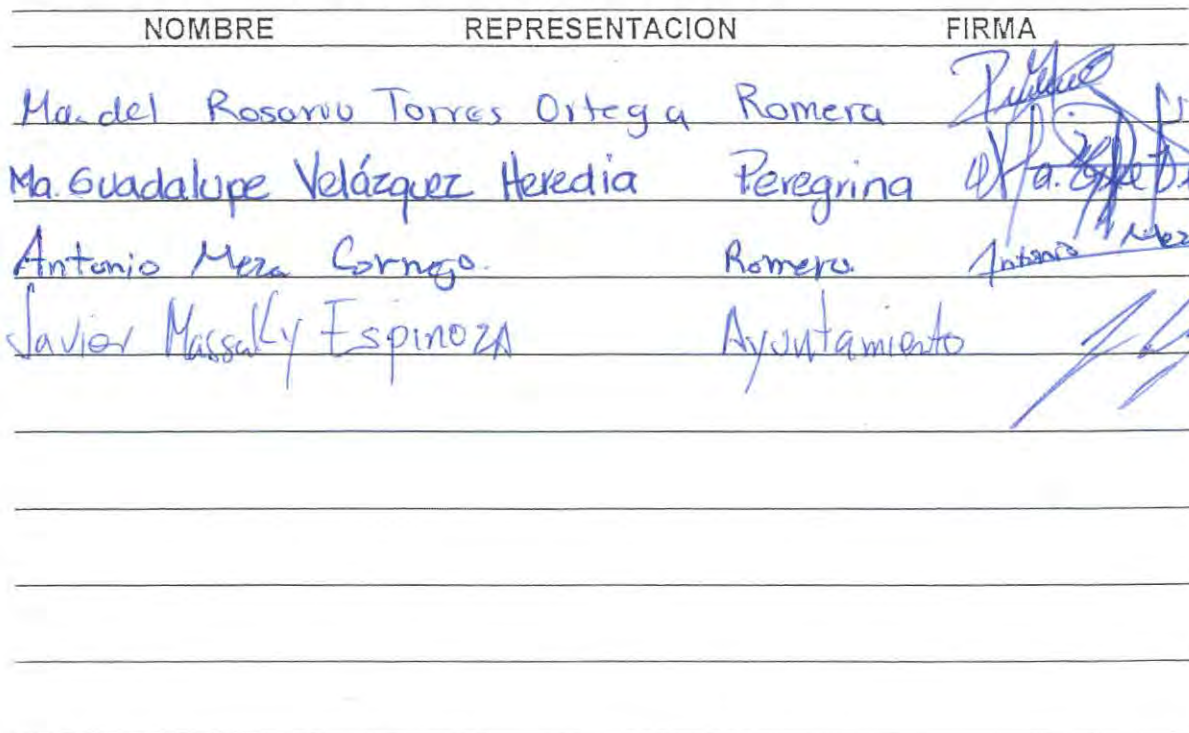 NOMBRE REPRESENTACION FIRMA
Ma. del Rosario Torres Ortega Romera
Ma. Guadalupe Velázquez Heredia Peregrina
Antonio Meza Cornejo. Romero Antonio Mez
Javier Massally Espinoza Ayuntamiento